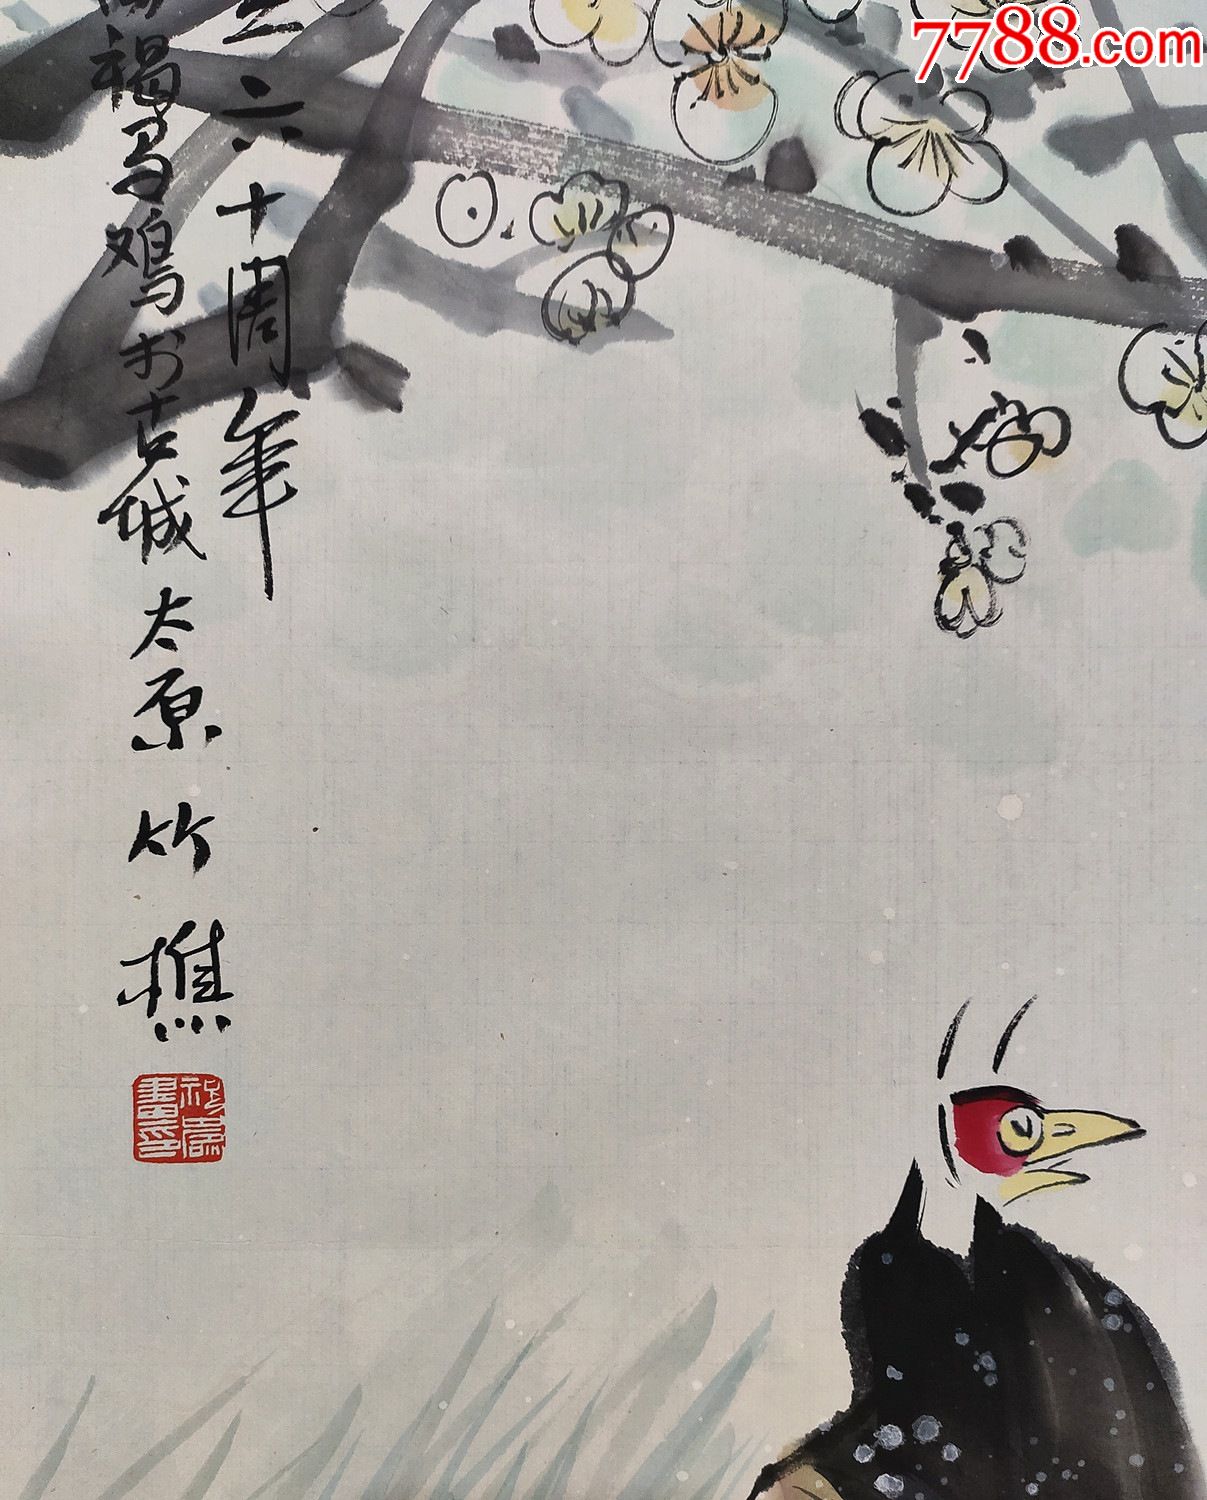 7788.com
立六十周年
褐马鸡于古城太原竹樵